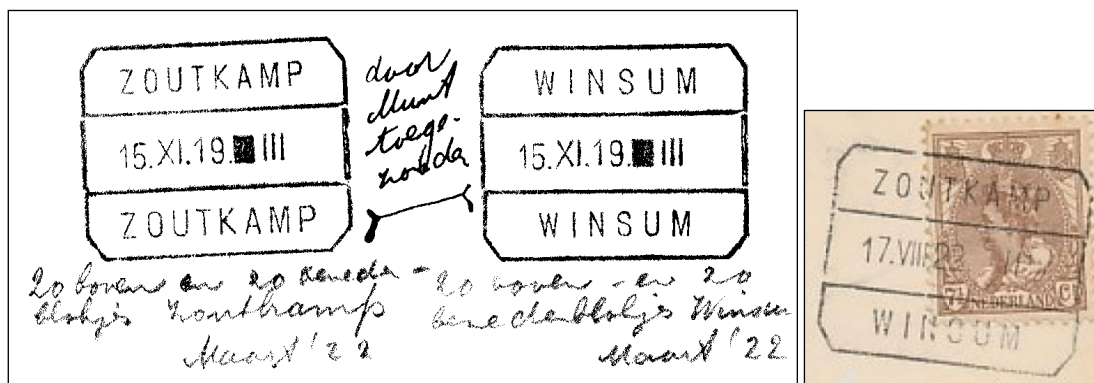 ZOUTKAMP
15.XI.19.■III
ZOUTKAMP
door
Munt
toege-
zonden
WINSUM
15.XI.19.■III
WINSUM
20 boven en 20 beneden-
blokjes Zoutkamp
Maart '22
20 boven - en 20
benedenblokjes Winsum
Maart '22
ZOUTKAMP
17.VII
WINSUM
7½ NEDERLAND Ct